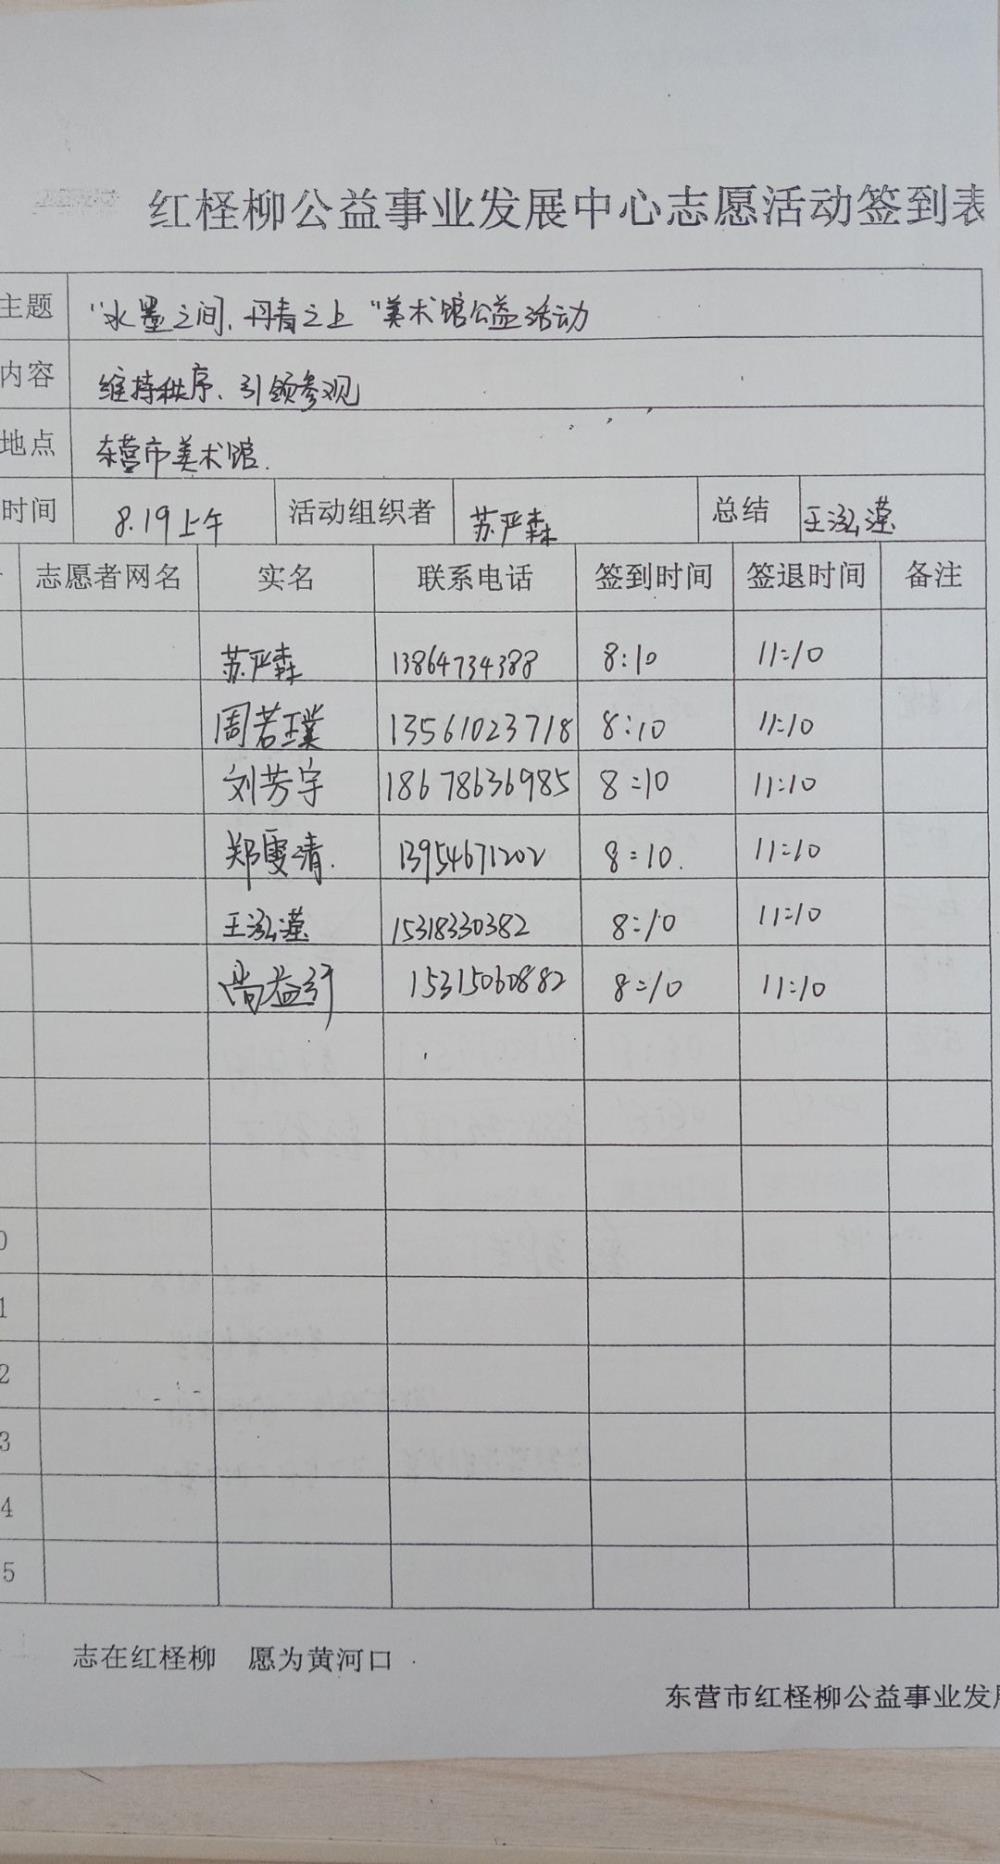 红柽柳公益事业发展中心志愿活动签到表
主题 “水墨之间、丹青之上”美术馆公益活动
内容 维持秩序、引领参观
地点 东营市美术馆.
时间 8.19上午 活动组织者 苏严森 总结 王泓滢
志愿者网名 实名 联系电话 签到时间 签退时间 备注
苏严森 13864734388 8:10 11:10
周若璞 13561023718 8:10 11:10
刘芳宇 18678636985 8:10 11:10
郑雯清. 13954671202 8:10. 11:10
王泓滢 15318330382 8:10 11:10
尚益衍 15315060882 8:10 11:10
0
1
2
3
4
5
志在红柽柳 愿为黄河口
东营市红柽柳公益事业发展